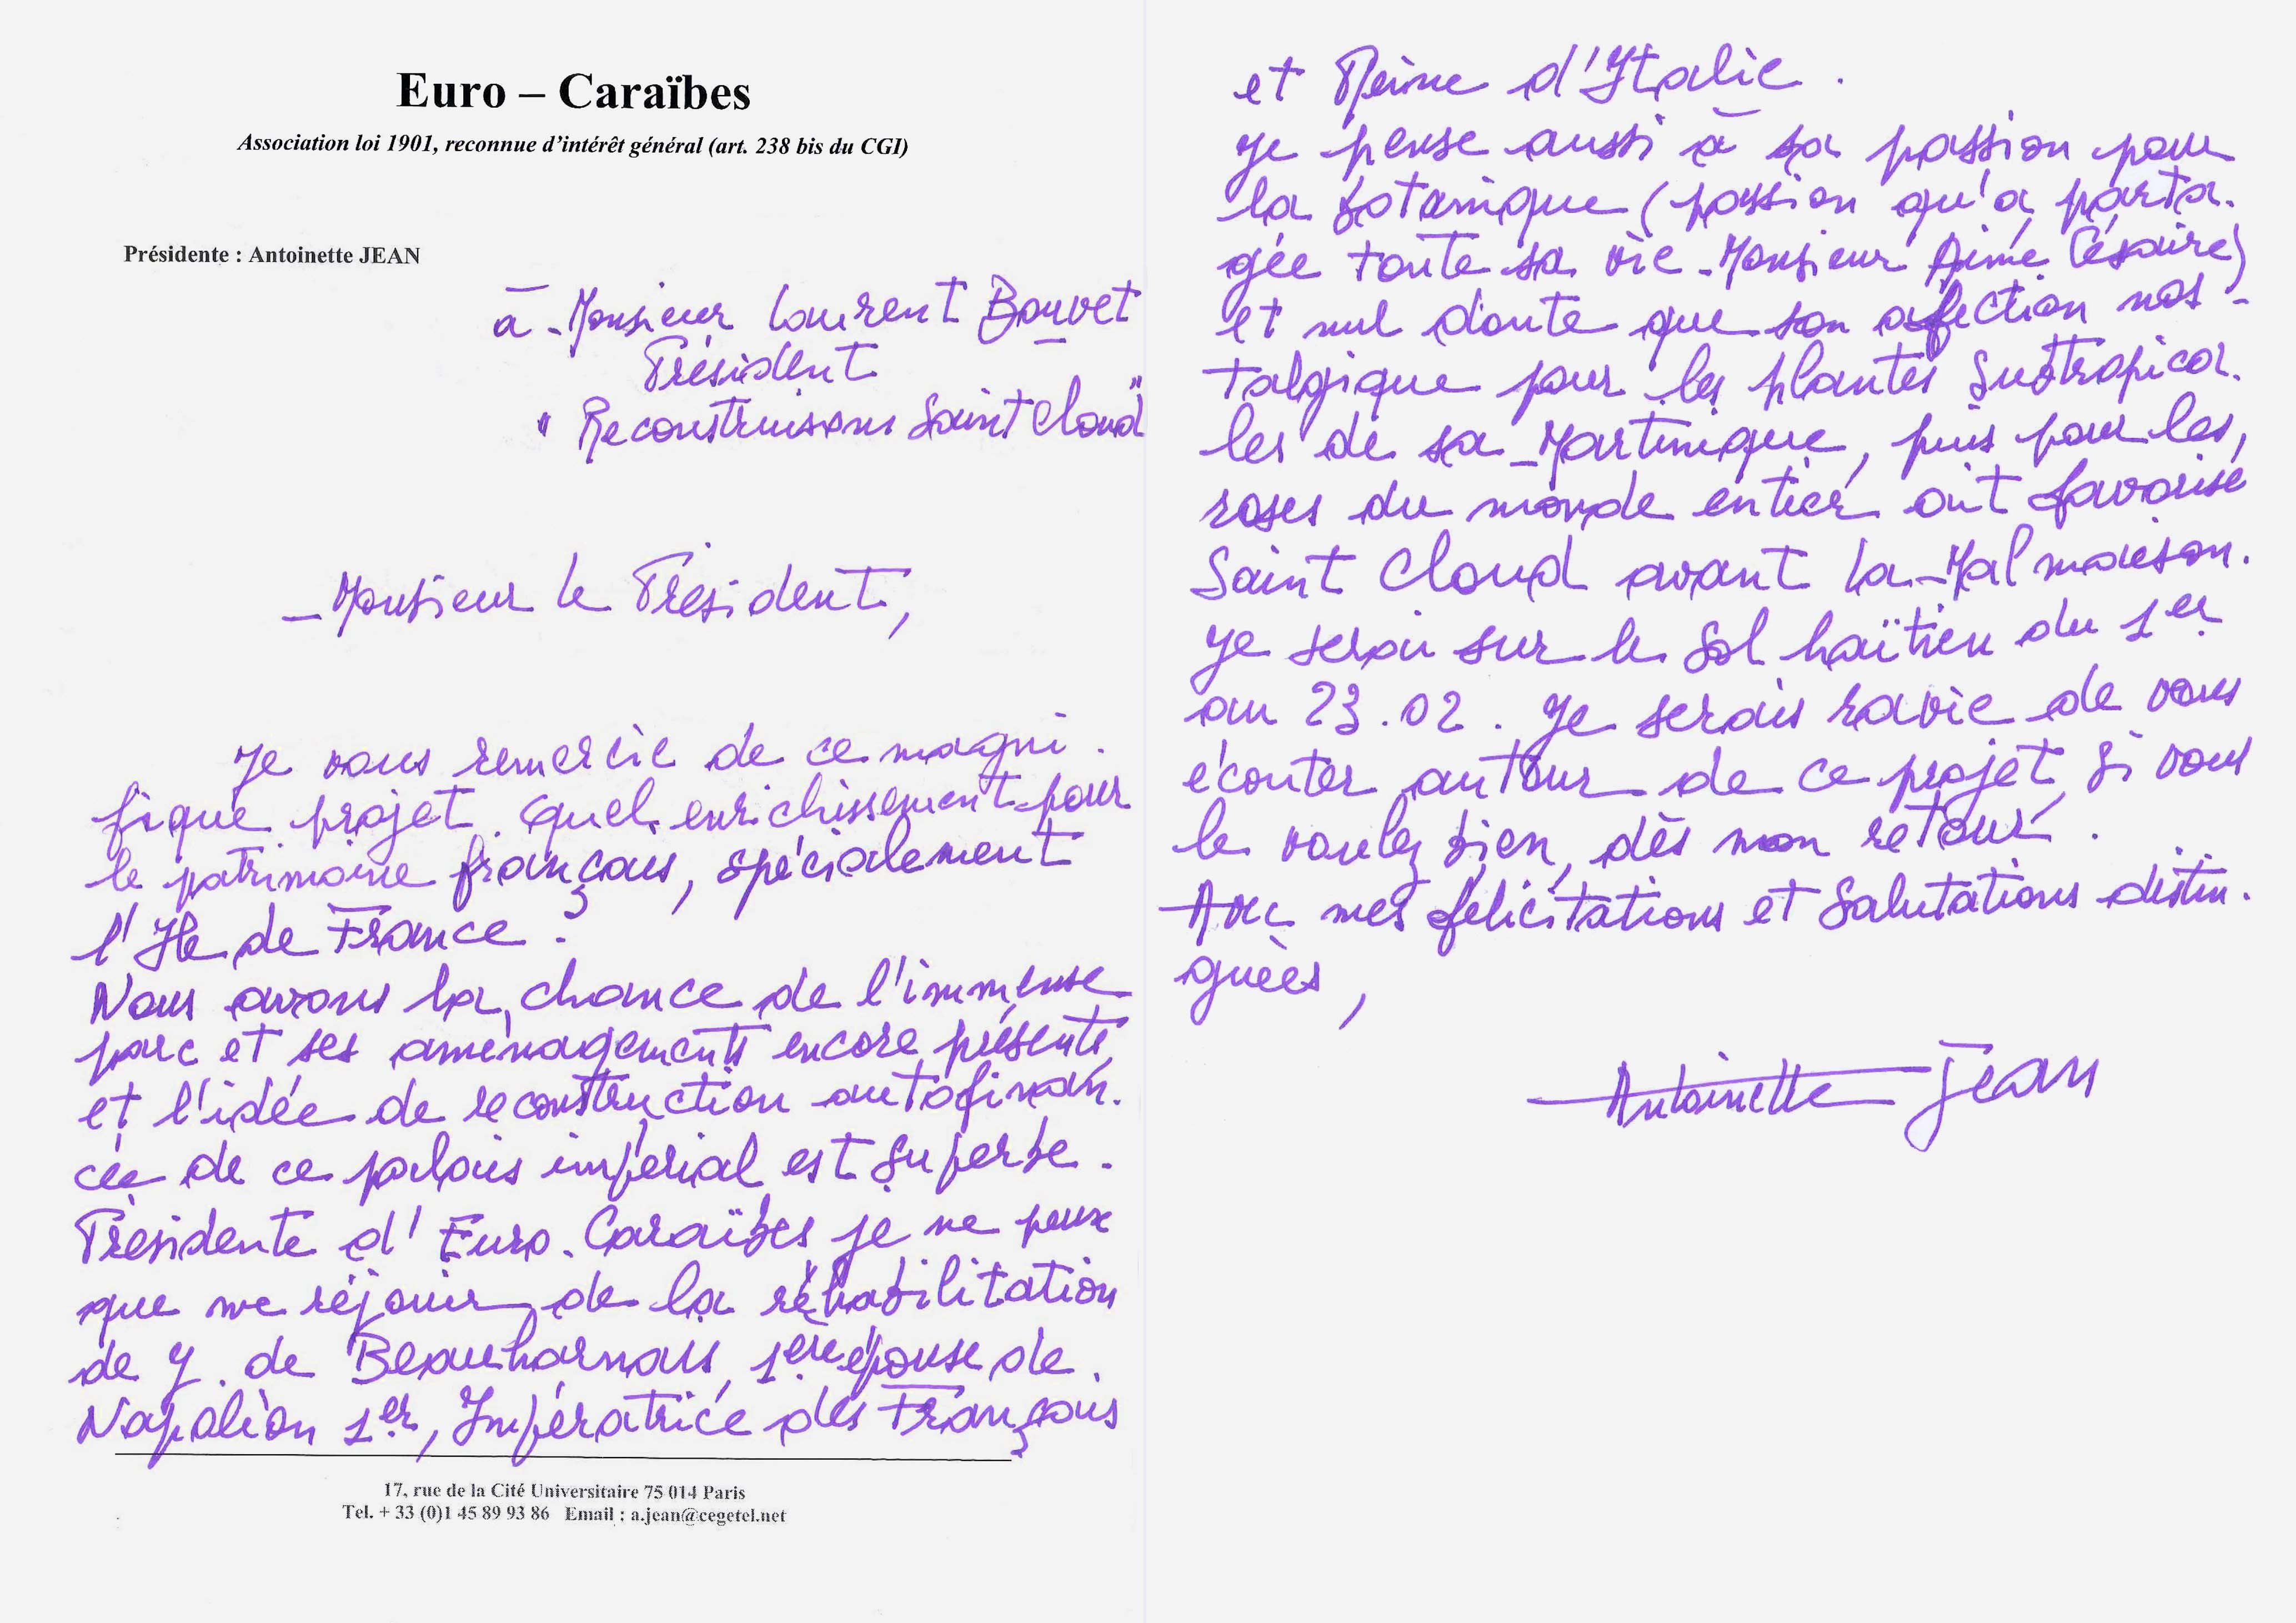 Euro – Caraïbes
Association loi 1901, reconnue d'intérêt général (art. 238 bis du CGI)
Présidente : Antoinette JEAN
à Monsieur Laurent Bouvet
Président
" Reconstruisons Saint Cloud"
Monsieur le Président,
Je vous remercie de ce magni-
fique projet. Quel enrichissement pour
le patrimoine français, spécialement
l'Ile de France !
Nous avons la chance de l'immense
parc et ses aménagements encore présents,
et l'idée de reconstruction autofinan-
cée de ce palais impérial est superbe.
Présidente d'Euro-Caraïbes je ne peux
que me réjouir de la réhabilitation
de J. de Beauharnais, 1ère épouse de
Napoléon 1er, Impératrice des Français
17, rue de la Cité Universitaire 75 014 Paris
Tel. + 33 (0)1 45 89 93 86 Email : a.jean@cegetel.net
et Reine d'Italie.
Je pense aussi à sa passion pour
la botanique (passion qu'a parta-
gée toute sa vie Monsieur Aimé Césaire)
et nul doute que son affection nos-
talgique pour les plantes subtropica-
les de sa Martinique, puis pour les
roses du monde entier ont favorisé
Saint Cloud avant la Malmaison.
Je serai sur le sol haïtien du 1er
au 23.02. Je serais ravie de vous
écouter autour de ce projet, si vous
le voulez bien, dès mon retour.
Avec mes félicitations et salutations distin-
guées,
Antoinette Jean